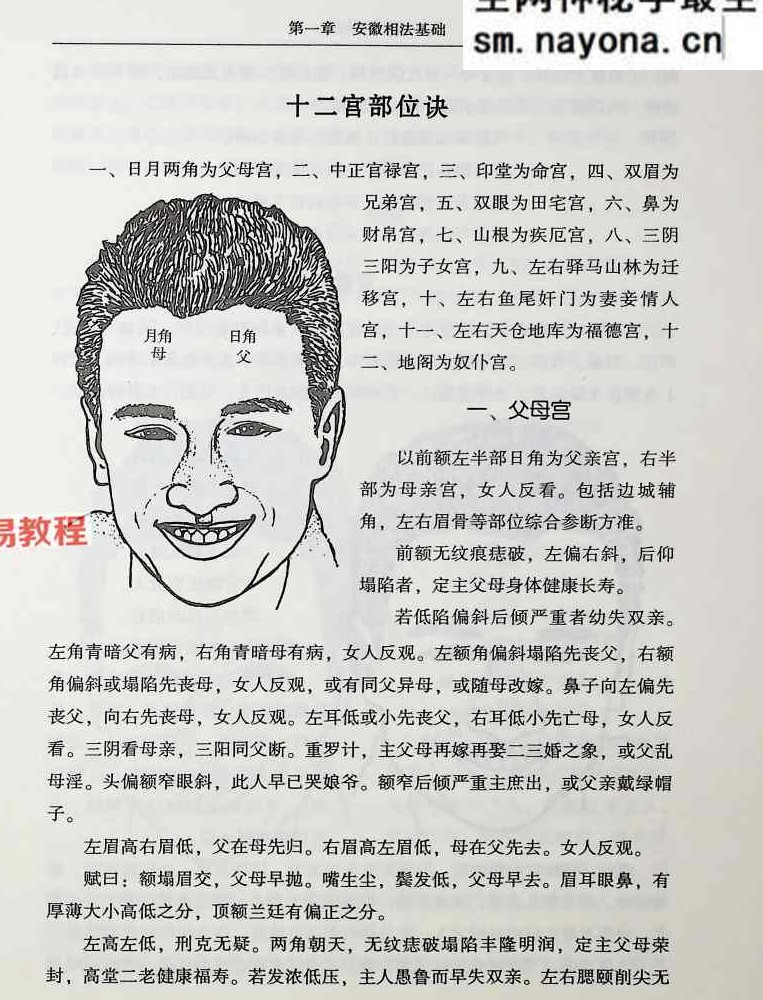 第一章 安徽相法基础
sm.nayona.cn
十二宫部位诀
一、日月两角为父母宫，二、中正官禄宫，三、印堂为命宫，四、双眉为
兄弟宫，五、双眼为田宅宫，六、鼻为
财帛宫，七、山根为疾厄宫，八、三阴
三阳为子女宫，九、左右驿马山林为迁
移宫，十、左右鱼尾奸门为妻妾情人
宫，十一、左右天仓地库为福德宫，十
二、地阁为奴仆宫。
月角
母
日角
父
一、父母宫
以前额左半部日角为父亲宫，右半
部为母亲宫，女人反看。包括边城辅
角，左右眉骨等部位综合参断方准。
前额无纹痕痣破，左偏右斜，后仰
塌陷者，定主父母身体健康长寿。
若低陷偏斜后倾严重者幼失双亲。
易教程
左角青暗父有病，右角青暗母有病，女人反观。左额角偏斜塌陷先丧父，右额
角偏斜或塌陷先丧母，女人反观，或有同父异母，或随母改嫁。鼻子向左偏先
丧父，向右先丧母，女人反观。左耳低或小先丧父，右耳低小先亡母，女人反
看。三阴看母亲，三阳同父断。重罗计，主父母再嫁再娶二三婚之象，或父乱
母淫。头偏额窄眼斜，此人早已哭娘爷。额窄后倾严重主庶出，或父亲戴绿帽
子。
左眉高右眉低，父在母先归。右眉高左眉低，母在父先去。女人反观。
赋曰：额塌眉交，父母早抛。嘴生尘，鬓发低，父母早去。眉耳眼鼻，有
厚薄大小高低之分，顶额兰廷有偏正之分。
左高左低，刑克无疑。两角朝天，无纹痣破塌陷丰隆明润，定主父母荣
封，高堂二老健康福寿。若发浓低压，主人愚鲁而早失双亲。左右腮颐削尖无